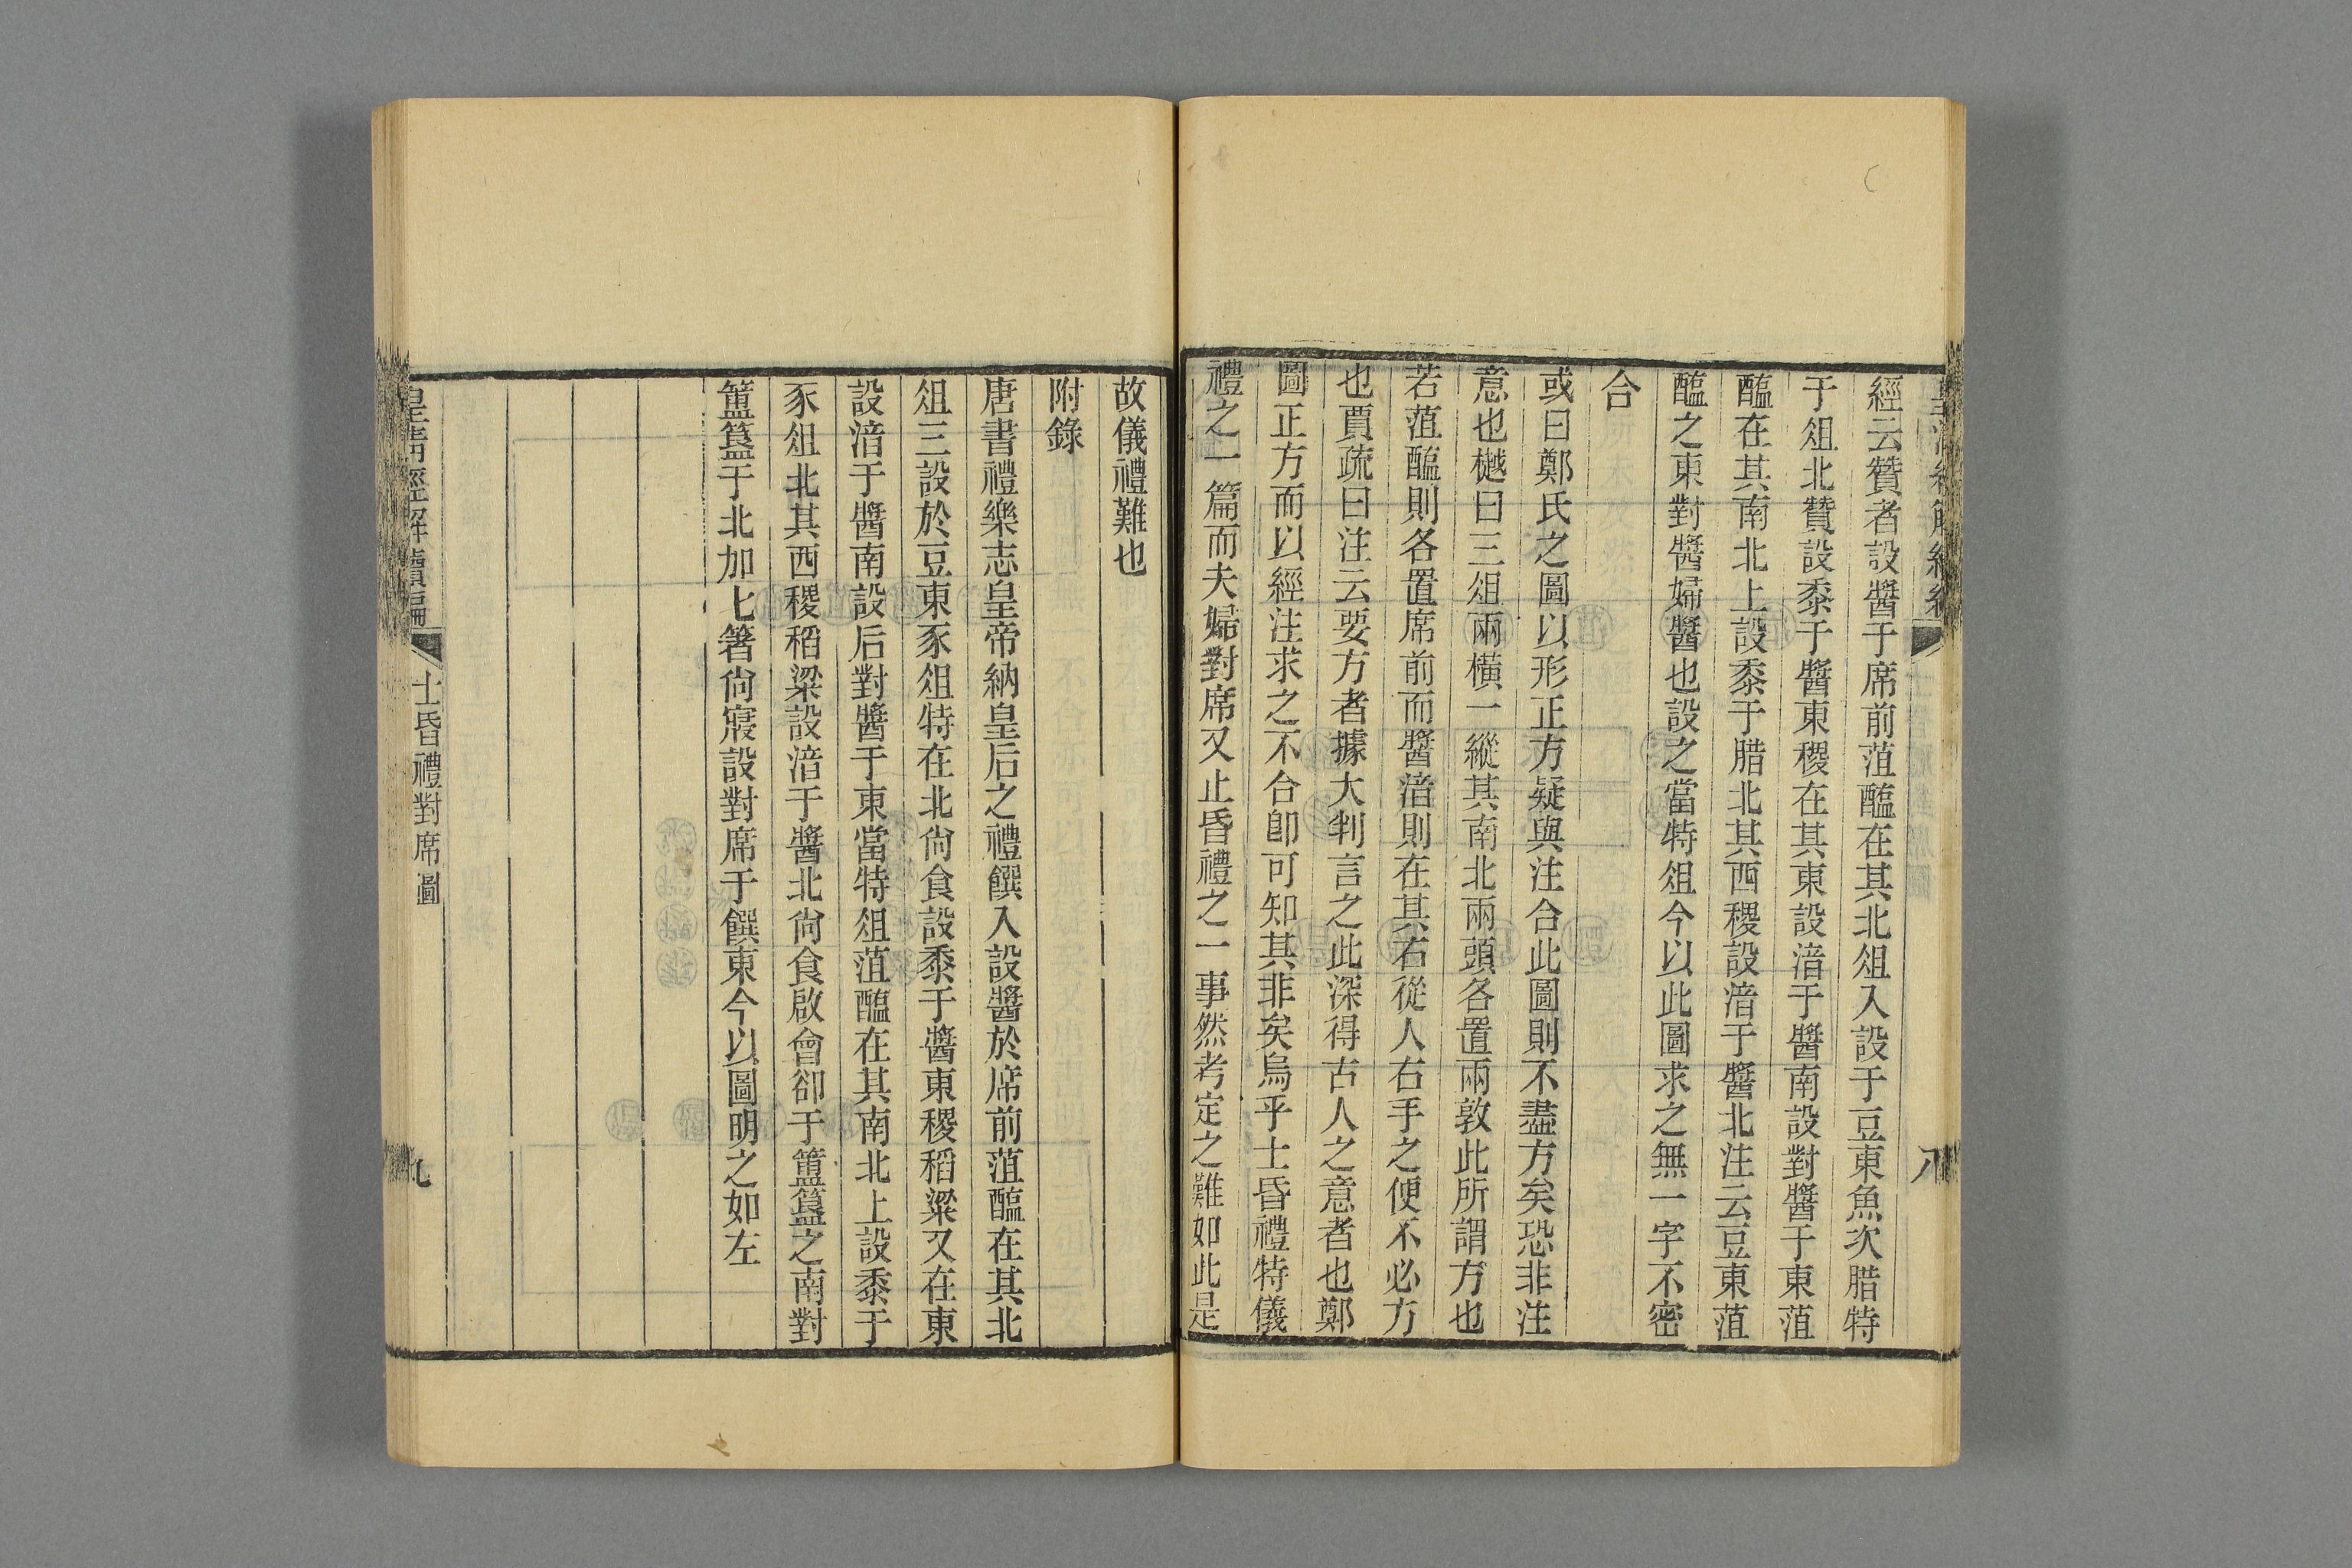 經云贊者設醬于席前菹醢在其北俎入設于豆東魚次腊特
于俎北贊設黍于醬東稷在其東設湆于醬南設對醬于東菹
醢在其南北上設黍于腊北其西稷設湆于醬北注云豆東菹
醢之東對醬婦醬也設之當特俎今以此圖求之無一字不密
合
或曰鄭氏之圖以形正方疑與注合此圖則不盡方矣恐非注
意也樾曰三俎兩橫一縱其南北兩頭各置兩敦此所謂方也
若菹醢則各置席前而醬湆則在其右從人右手之便不必方
也賈疏曰注云要方者據大判言之此深得古人之意者也鄭
圖正方而以經注求之不合卽可知其非矣烏乎士昏禮特儀
禮之一篇而夫婦對席又止昏禮之一事然考定之難如此是
八
故儀禮難也
附錄
唐書禮樂志皇帝納皇后之禮饌入設醬於席前菹醢在其北
俎三設於豆東豕俎特在北尙食設黍于醬東稷稻粱又在東
設湆于醬南設后對醬于東當特俎菹醢在其南北上設黍于
豕俎北其西稷稻梁設湆于醬北尙食啟會卻于簠簋之南對
簠簋于北加匕箸尙寢設對席于饌東今以圖明之如左
皇清經解續編
士昏禮對席圖
九